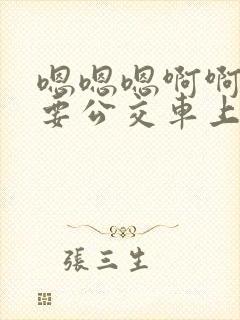 嗯嗯嗯啊啊
要公交車上
張三生